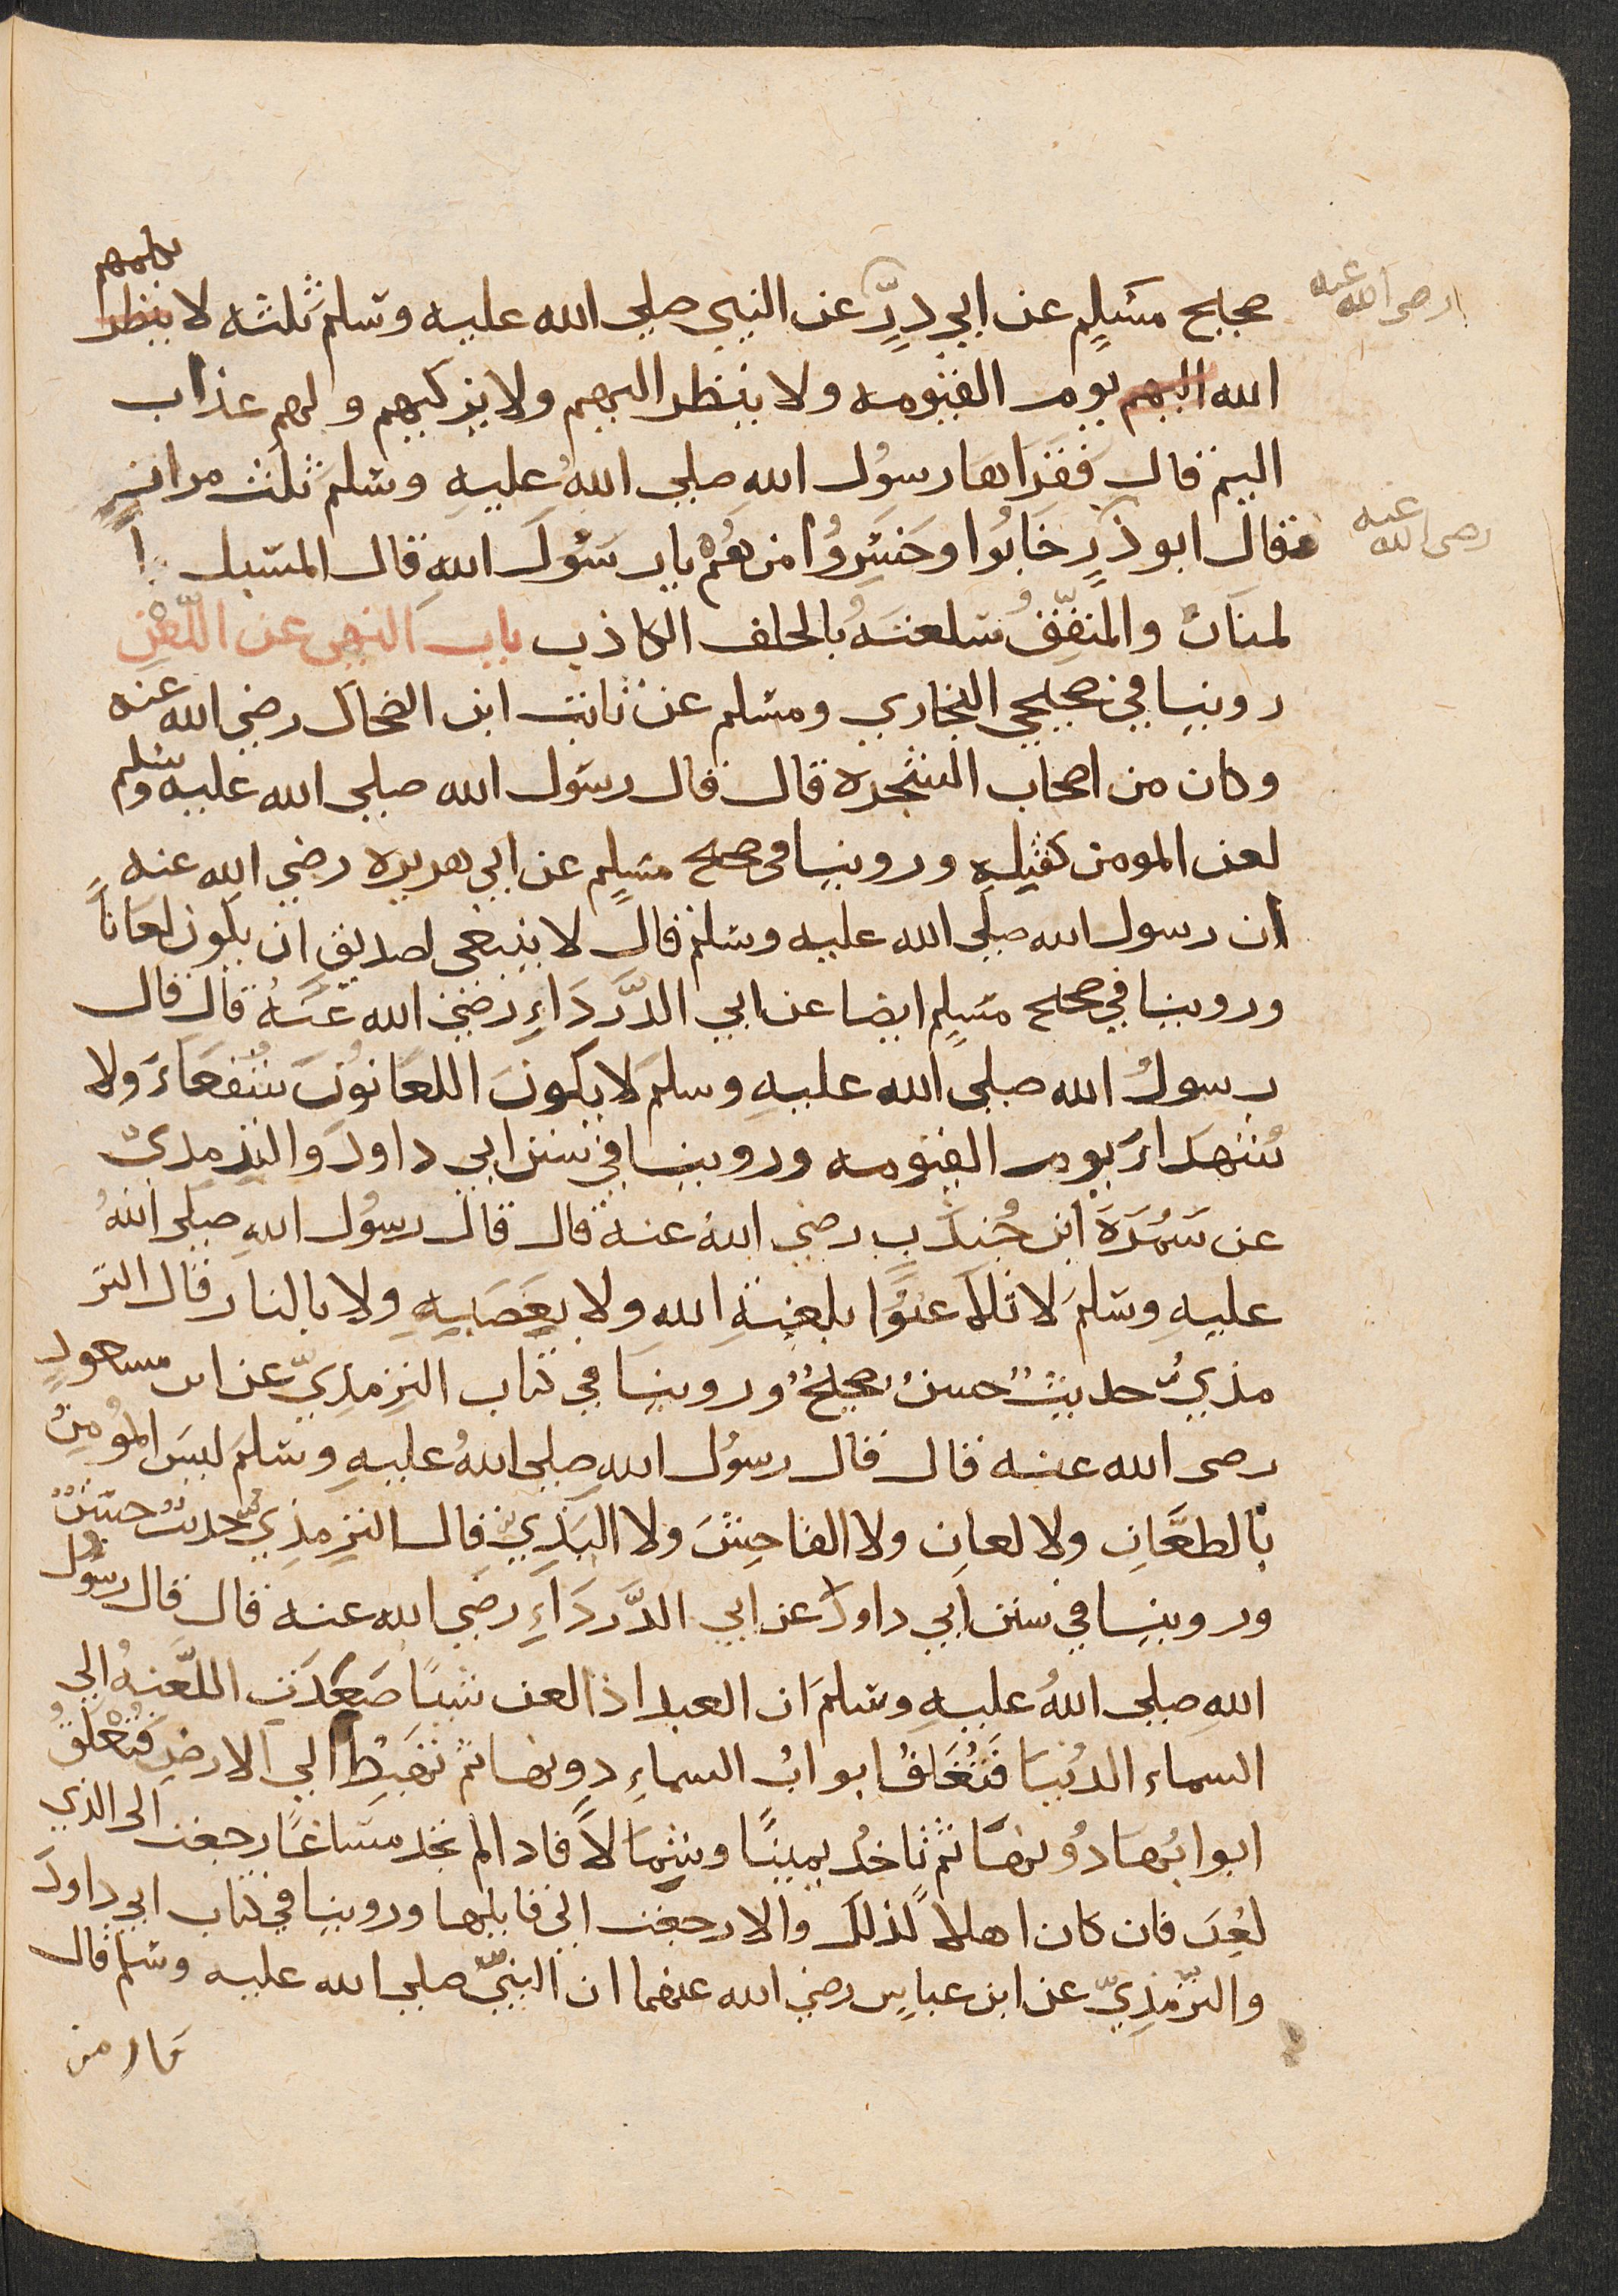 يكلمهم
صحيح مسلم عن ابي ذرٍّ عن النبي صلي الله عليه وسلم ثلثه لا ينظر
رضى الله عنه
الله اليهم يوم القيومه ولا ينظر اليهم ولا يزكيهم ولهم عذاب
اليم قال فقراها رسول الله صلي الله عليه وسلم ثلث مراتٍ
فقال ابو ذرٍ خابُوا وخسِرُوا من هُمْ يا رسُولَ اللهِ قال المسبل ا
رضى الله عنه
لمنان والمنفِّقُ سلعتهُ بالحلف الكاذب باب النهى عن اللّعْنِ
روينا في صحيحي البخاري ومسلم عن ثابت ابن الضحاك رضي الله عنه
وكان من اصحاب الشجره قال قال رسول الله صلي الله عليه وسلم
لعن المومن كقتلِهِ وروينا فى صحيح مسلمٍ عن ابي هريره رضي الله عنه
ان رسول الله صلى الله عليه وسلم قال لا ينبغى لصديقٍ ان يكون لعاناً
وروينا في صحيح مسلمٍ ايضا عن ابي الدَّردَاءِ رضي الله عنهُ قال قال
رسولُ الله صلي الله عليهِ وسلمَ لا يكونَ اللعَانُونَ شُفعَاءَ ولا
شُهدَاءَ يوم القيومه وروينا في سنن ابي داودَ والترمذىّ
عن سَمُرَةَ ابن جُندَبٍ رضي اللهُ عنه قال قال رسُول اللهِ صلى اللهُ
عليهِ وسلمَ لا تلاعَنوُا بلعنةِ الله ولا بغَضَبِهِ ولا بالنار قال التر
مذيُّ حديثٌ حسنٌ صحيحٌ وروينا في كتاب الترمذِيّ عن ابن مسعودٍ
رضى الله عنه قال قال رسُول اللهِ صلى اللهُ عليهِ وسلمَ ليسَ المُومِنُ
بالطعَّانِ ولا لعانِ ولا الفاحِشَ ولا البَذِي قال الترمذِي حديث حسنٌ
وروينا في سنن ابي داودَ عن ابي الدَّردَاءِ رضي الله عنه قال قال رسُول
اللهِ صلى اللهُ عليهِ وسلمَ ان العبد اذا لعن شيئاً صَعِدَتِ اللَّعنهُ الي
السماء الدُنيا فَتُغلَقُ ابوابُ السماءِ دونها ثم تهبِطُ الي الارضِ فَتُغْلَقُ
ابوابُها دُونها ثم تاخُد يميناً وشِمالاً فاذا لم تجد مساغًا رجعت الى الذي
لعِنَ فان كان اهلاً لذلكَ والا رجعت الي قايلها وروينا في كتاب ابي داودَ
والترمذِيّ عن ابن عباسٍ رضي الله عنهما ان النبيَّ صلي الله عليه وسلم قال
من